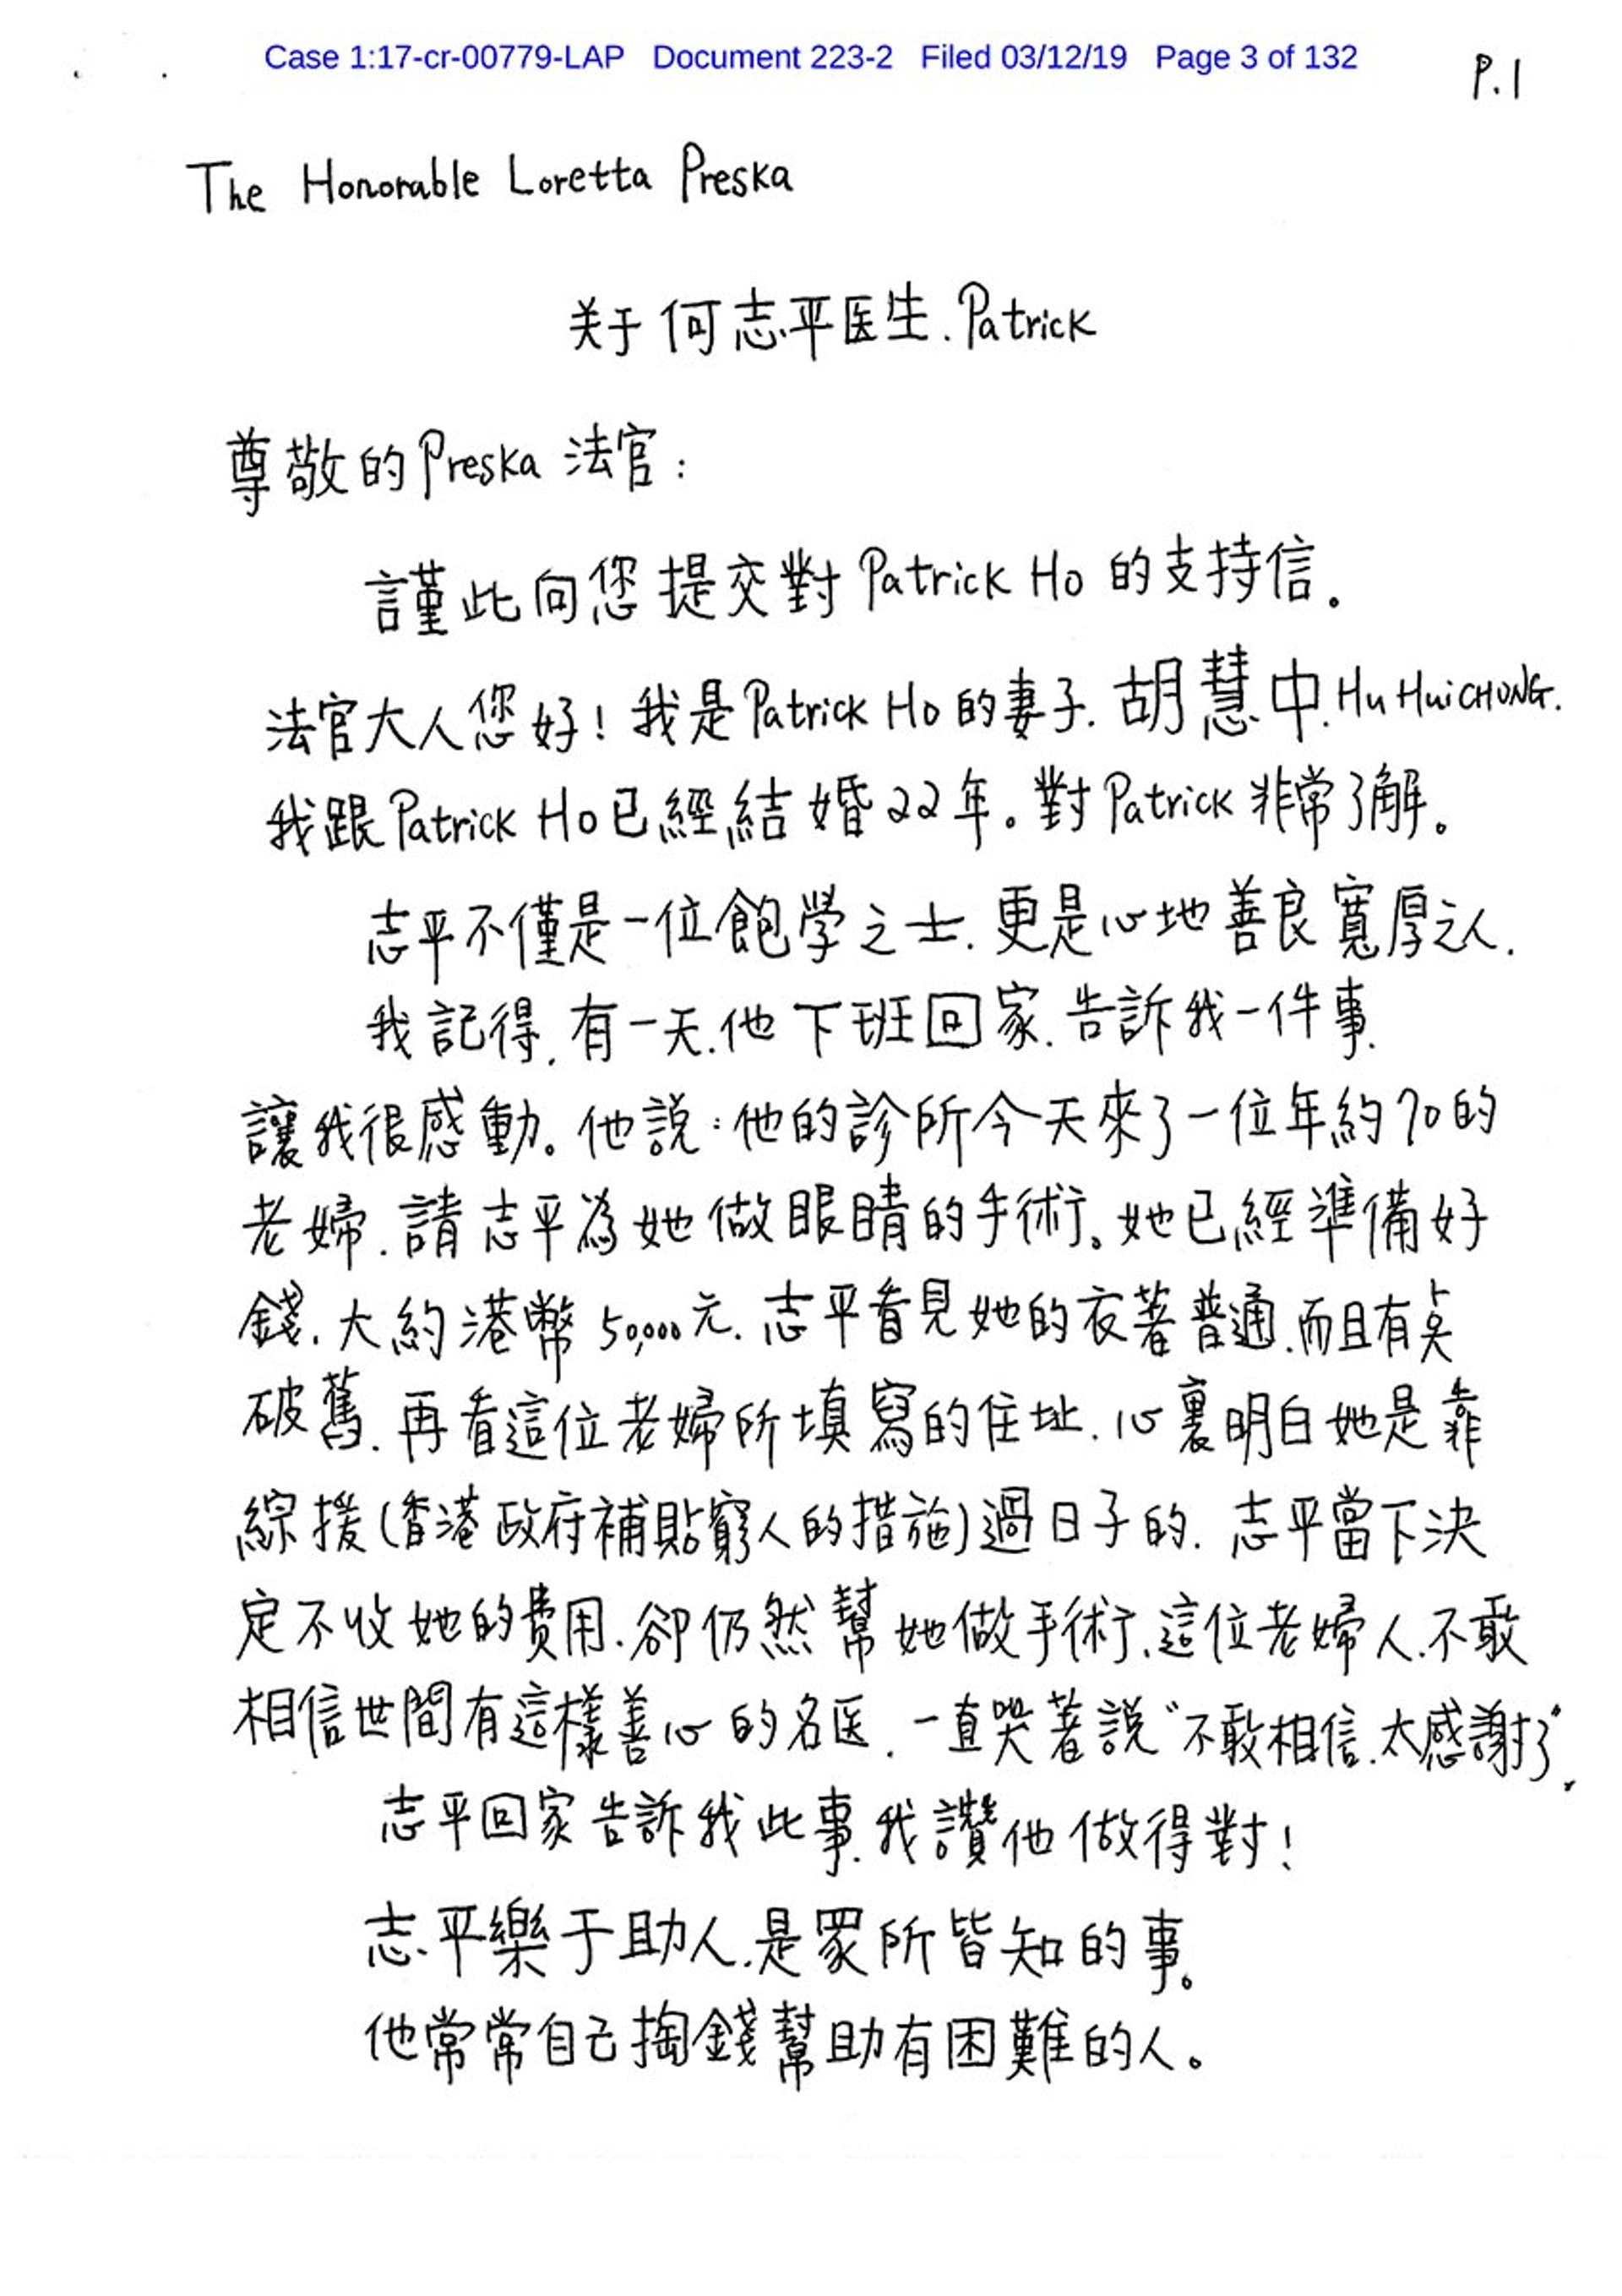 Case 1:17-cr-00779-LAP Document 223-2 Filed 03/12/19 Page 3 of 132
P.1
The Honorable Loretta Preska
关于何志平医生.Patrick
尊敬的Preska法官:
謹此向您提交對Patrick Ho的支持信。
法官大人您好!我是Patrick Ho的妻子.胡慧中.Hu HuiCHUNG.
我跟Patrick Ho已經結婚22年。對Patrick非常了解。
志平不僅是一位飽學之士.更是心地善良寬厚之人.
我記得.有一天.他下班回家.告訴我一件事.
讓我很感動。他說:他的診所今天來了一位年約70的
老婦.請志平為她做眼睛的手術。她已經準備好
錢.大約港幣50,000元.志平看見她的衣著普通.而且有点
破舊.再看這位老婦所填寫的住址.心裏明白她是靠
綜援(香港政府補貼窮人的措施)過日子的.志平當下決
定不收她的費用.卻仍然幫她做手術.這位老婦人.不敢
相信世間有這樣善心的名医.一直哭著說"不敢相信.太感謝了".
志平回家告訴我此事.我讚他做得對!
志平樂于助人.是眾所皆知的事。
他常常自己掏錢幫助有困難的人。